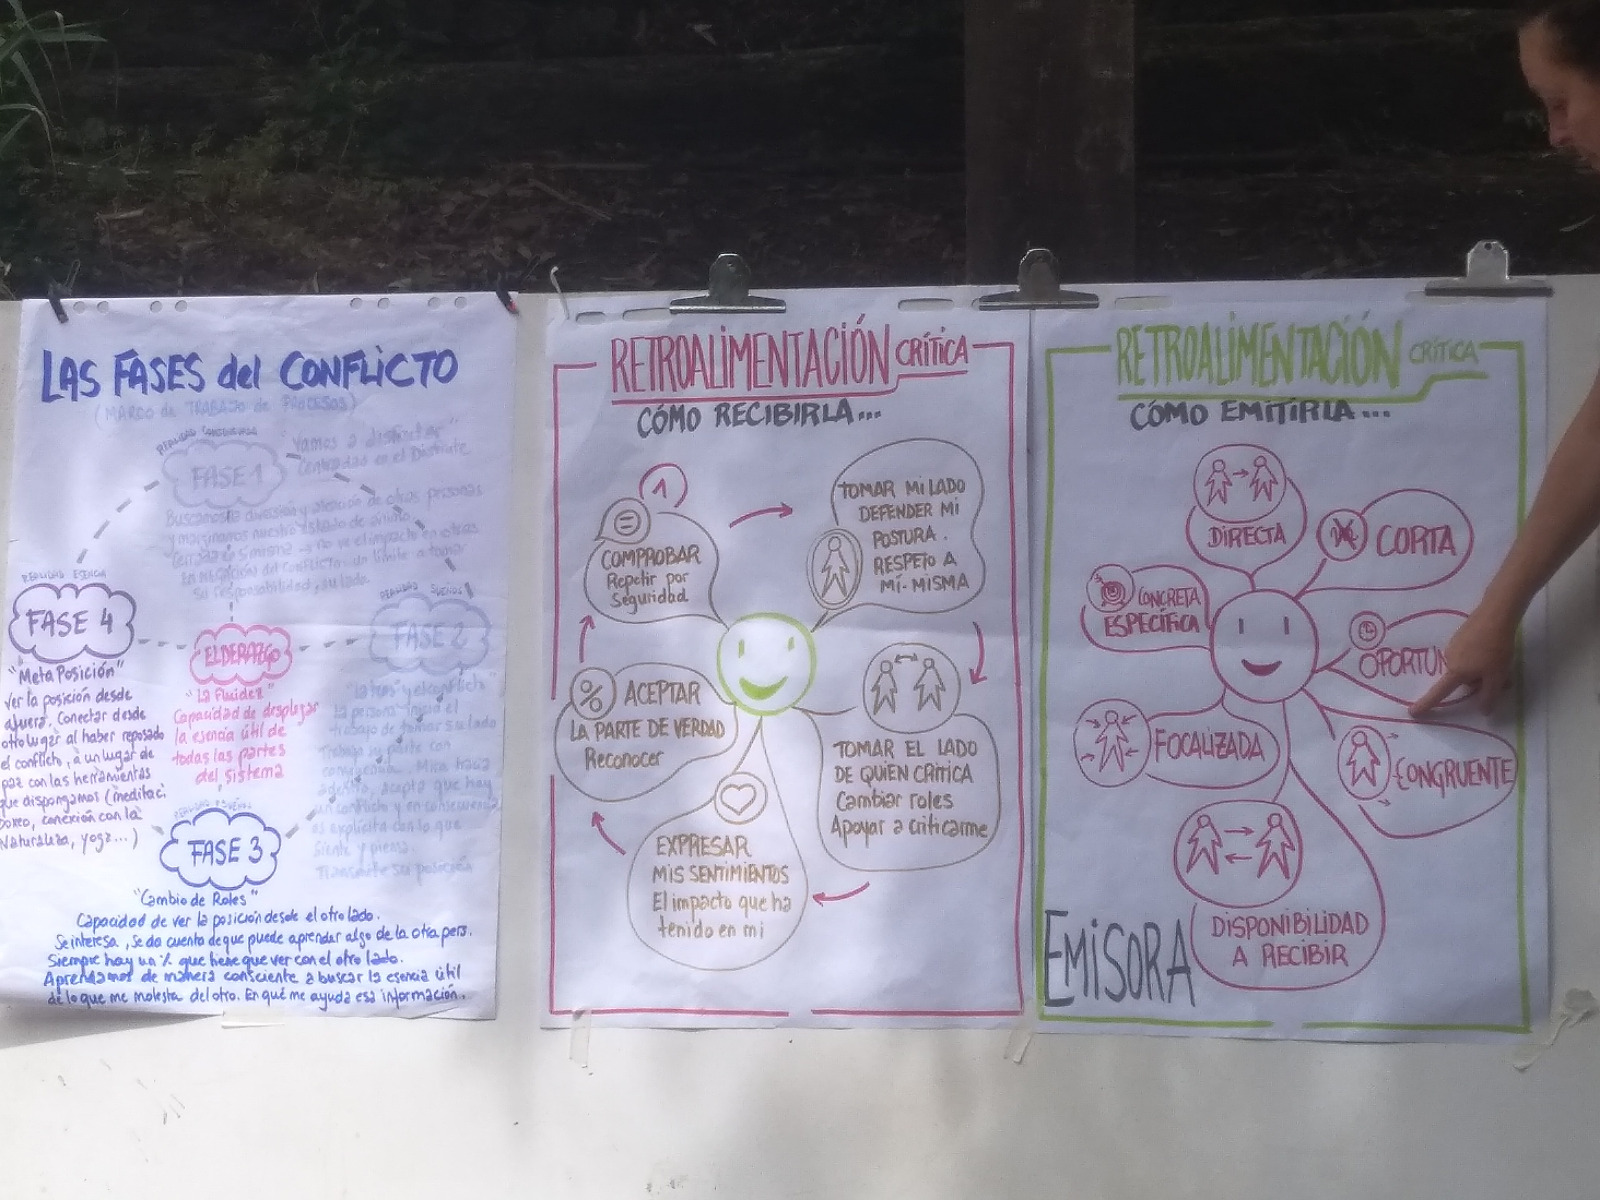 LAS FASES del CONFLICTO
(MARCO de TRABAJO de PROCESOS)
REALIDAD CONSENSUADA
FASE 1
"Vamos a distraer"
Centradas en el Disfrute
Buscamos la diversión y atención de otras personas
y marginamos nuestro estado de ánimo
EN NEGACIÓN del CONFLICTO
su responsabilidad, su lado.
REALIDAD SUEÑOS
FASE 2
La persona inicia el
trabajo de tomar su lado
Trabaja su parte con
consciencia. Mira hacia
adentro, acepta que hay
un conflicto y en consecuencia
es explícita con lo que
siente y piensa.
Transmite su posición
ELDERAZGO
"La Fluidez"
Capacidad de desplegar
la esencia útil de
todas las partes
del sistema
REALIDAD ESENCIA
FASE 4
"Meta Posición"
Ver la posición desde
afuera. Conectar desde
otro lugar al haber reposado
el conflicto, a un lugar de
paz con las herramientas
que dispongamos (meditaci
boxeo, conexión con la
Naturaleza, yoga...)
FASE 3
"Cambio de Roles"
Capacidad de ver la posición desde el otro lado.
Se interesa, se da cuenta de que puede aprender algo de la otra pers.
Siempre hay un % que tiene que ver con el otro lado.
Aprendamos de manera consciente a buscar la esencia útil
de lo que me molesta del otro. En qué me ayuda esa información.
RETROALIMENTACIÓN CRÍTICA
CÓMO RECIBIRLA...
1
COMPROBAR
Repetir por
Seguridad
TOMAR MI LADO
DEFENDER MI
POSTURA.
RESPETO A
MÍ-MISMA
TOMAR EL LADO
DE QUIEN CRITICA
Cambiar roles
Apoyar a criticarme
EXPRESAR
MIS SENTIMIENTOS
El impacto que ha
tenido en mi
% ACEPTAR
LA PARTE DE VERDAD
Reconocer
RETROALIMENTACIÓN CRÍTICA
CÓMO EMITIRLA...
DIRECTA
CORTA
CONCRETA
ESPECÍFICA
OPORTUN
FOCALIZADA
CONGRUENTE
DISPONIBILIDAD
A RECIBIR
EMISORA